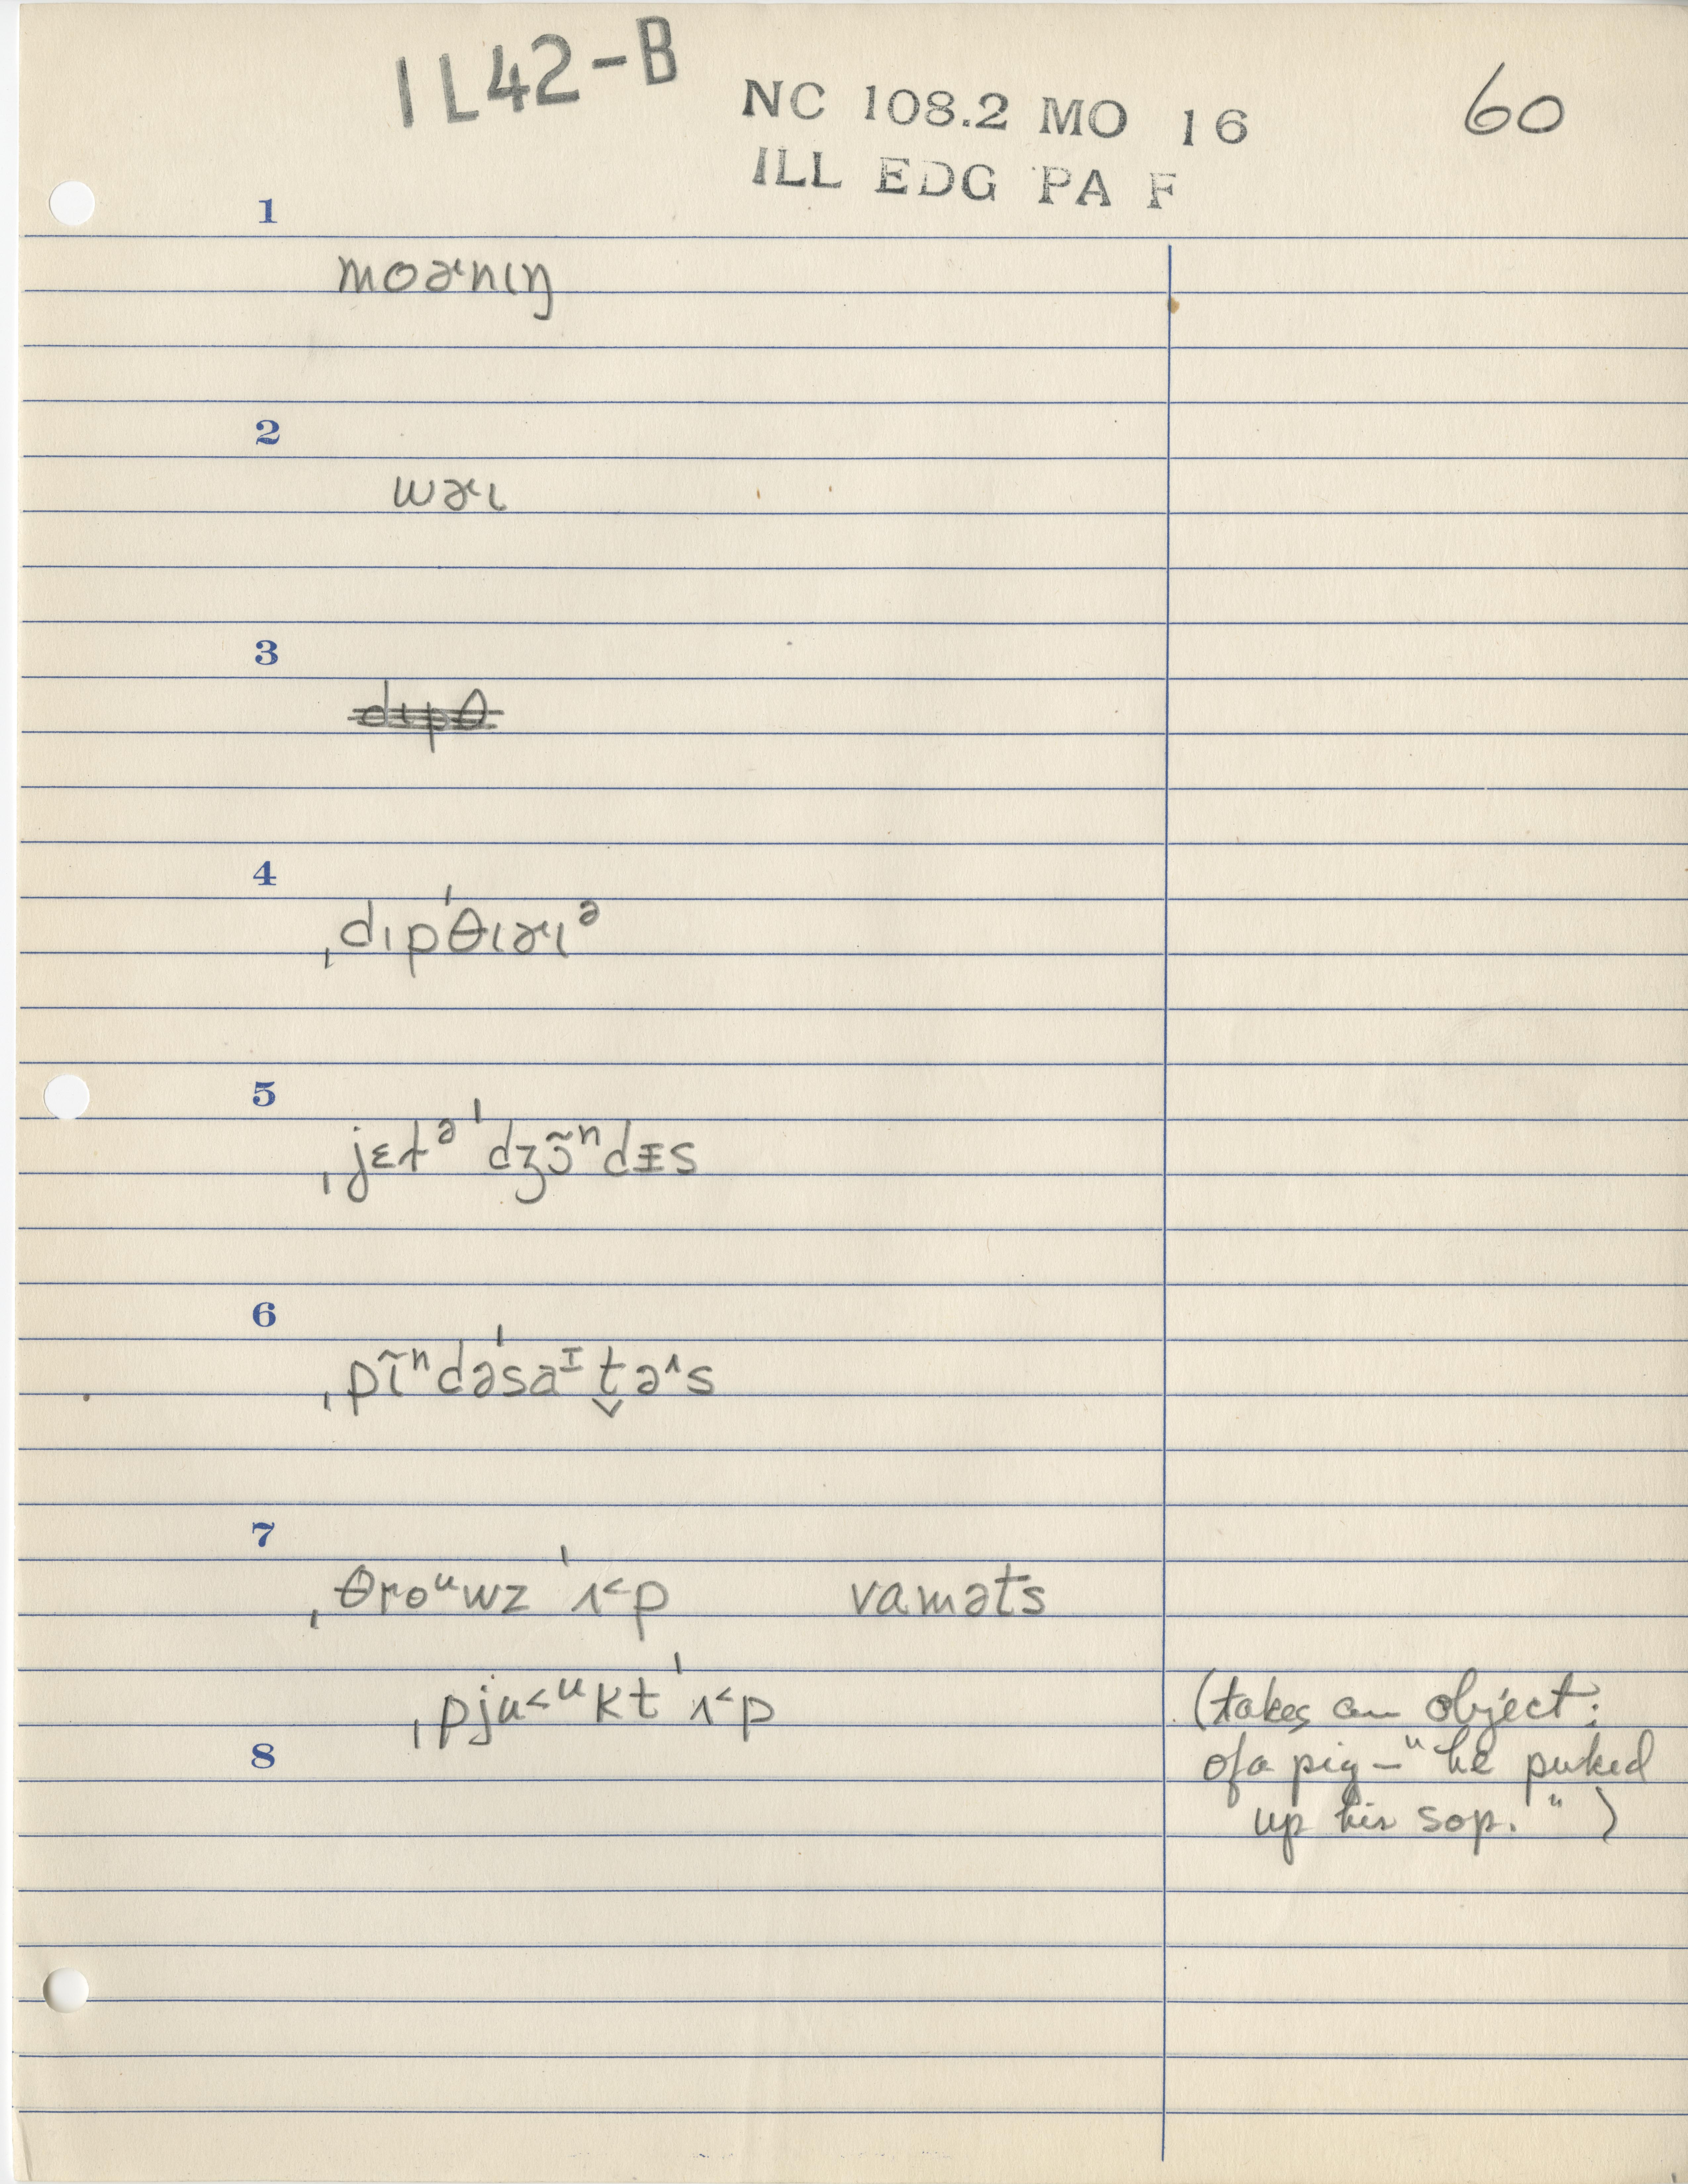 IL42-B
NC 108.2 MO 16
60
ILL EDG PA F
1
moɚnɩŋ
2
wɚɩ
3
dɩpθ
4
ˌdɩpˈθɩɚɩᵊ
5
ˌjɛɫᵊ ˈdʒɔ̃ⁿdɪs
6
ˌpɩ̃ⁿdəˈsaᶦt̬əʌs
7
ˌθroᵘwz ˈʌ˂p vaməts
ˌpju˂ᵘkt ˈʌ˂p
(takes an object:
8
of a pig – "he puked
up his sop.")